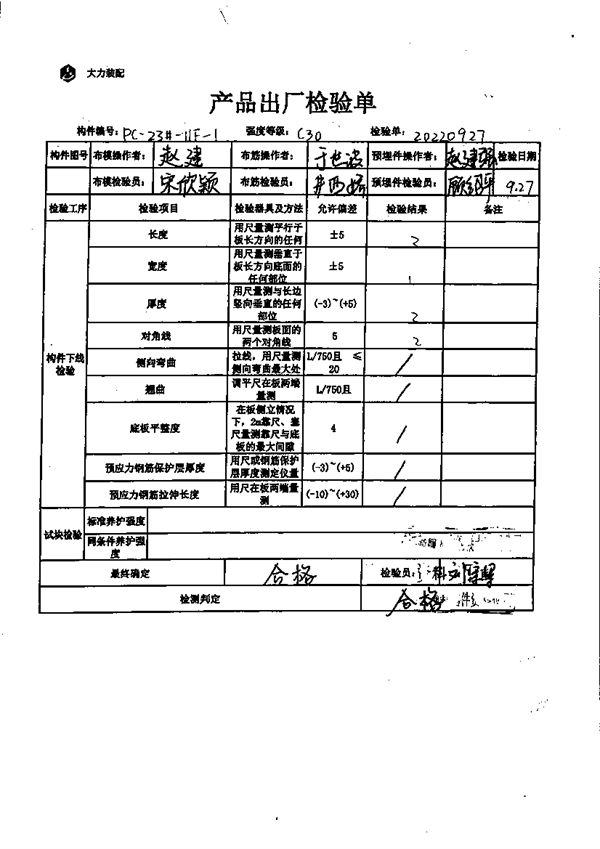 大力装配
产品出厂检验单
构件编号：PC-23#-11F-1 强度等级：C30 检验单：20220927
构件图号 布模操作者：赵建 布筋操作者： 预埋件操作者：赵建 检验日期
布模检验员：宋欣颖 布筋检验员： 预埋件检验员： 9.27
检验工序 检验项目 检验器具及方法 允许偏差 检验结果 备注
构件下线检验
长度 用尺量测平行于板长方向的任何 ±5 2
宽度 用尺量测垂直于板长方向底面的任何部位 ±5 1
厚度 用尺量测与长边竖向垂直的任何部位 (-3)~(+5) 2
对角线 用尺量测板面的两个对角线 5 2
侧向弯曲 拉线，用尺量测侧向弯曲最大处 L/750且 ≤20 /
翘曲 调平尺在板两端量测 L/750且 /
底板平整度 在板侧立情况下，2m靠尺、塞尺量测靠尺与底板的最大间隙 4 /
预应力钢筋保护层厚度 用尺或钢筋保护层厚度测定仪量 (-3)~(+5) /
预应力钢筋拉伸长度 用尺在板两端量测 (-10)~(+30) /
试块检验 标准养护强度
同条件养护强度
最终确定 合格 检验员：
检测判定 合格